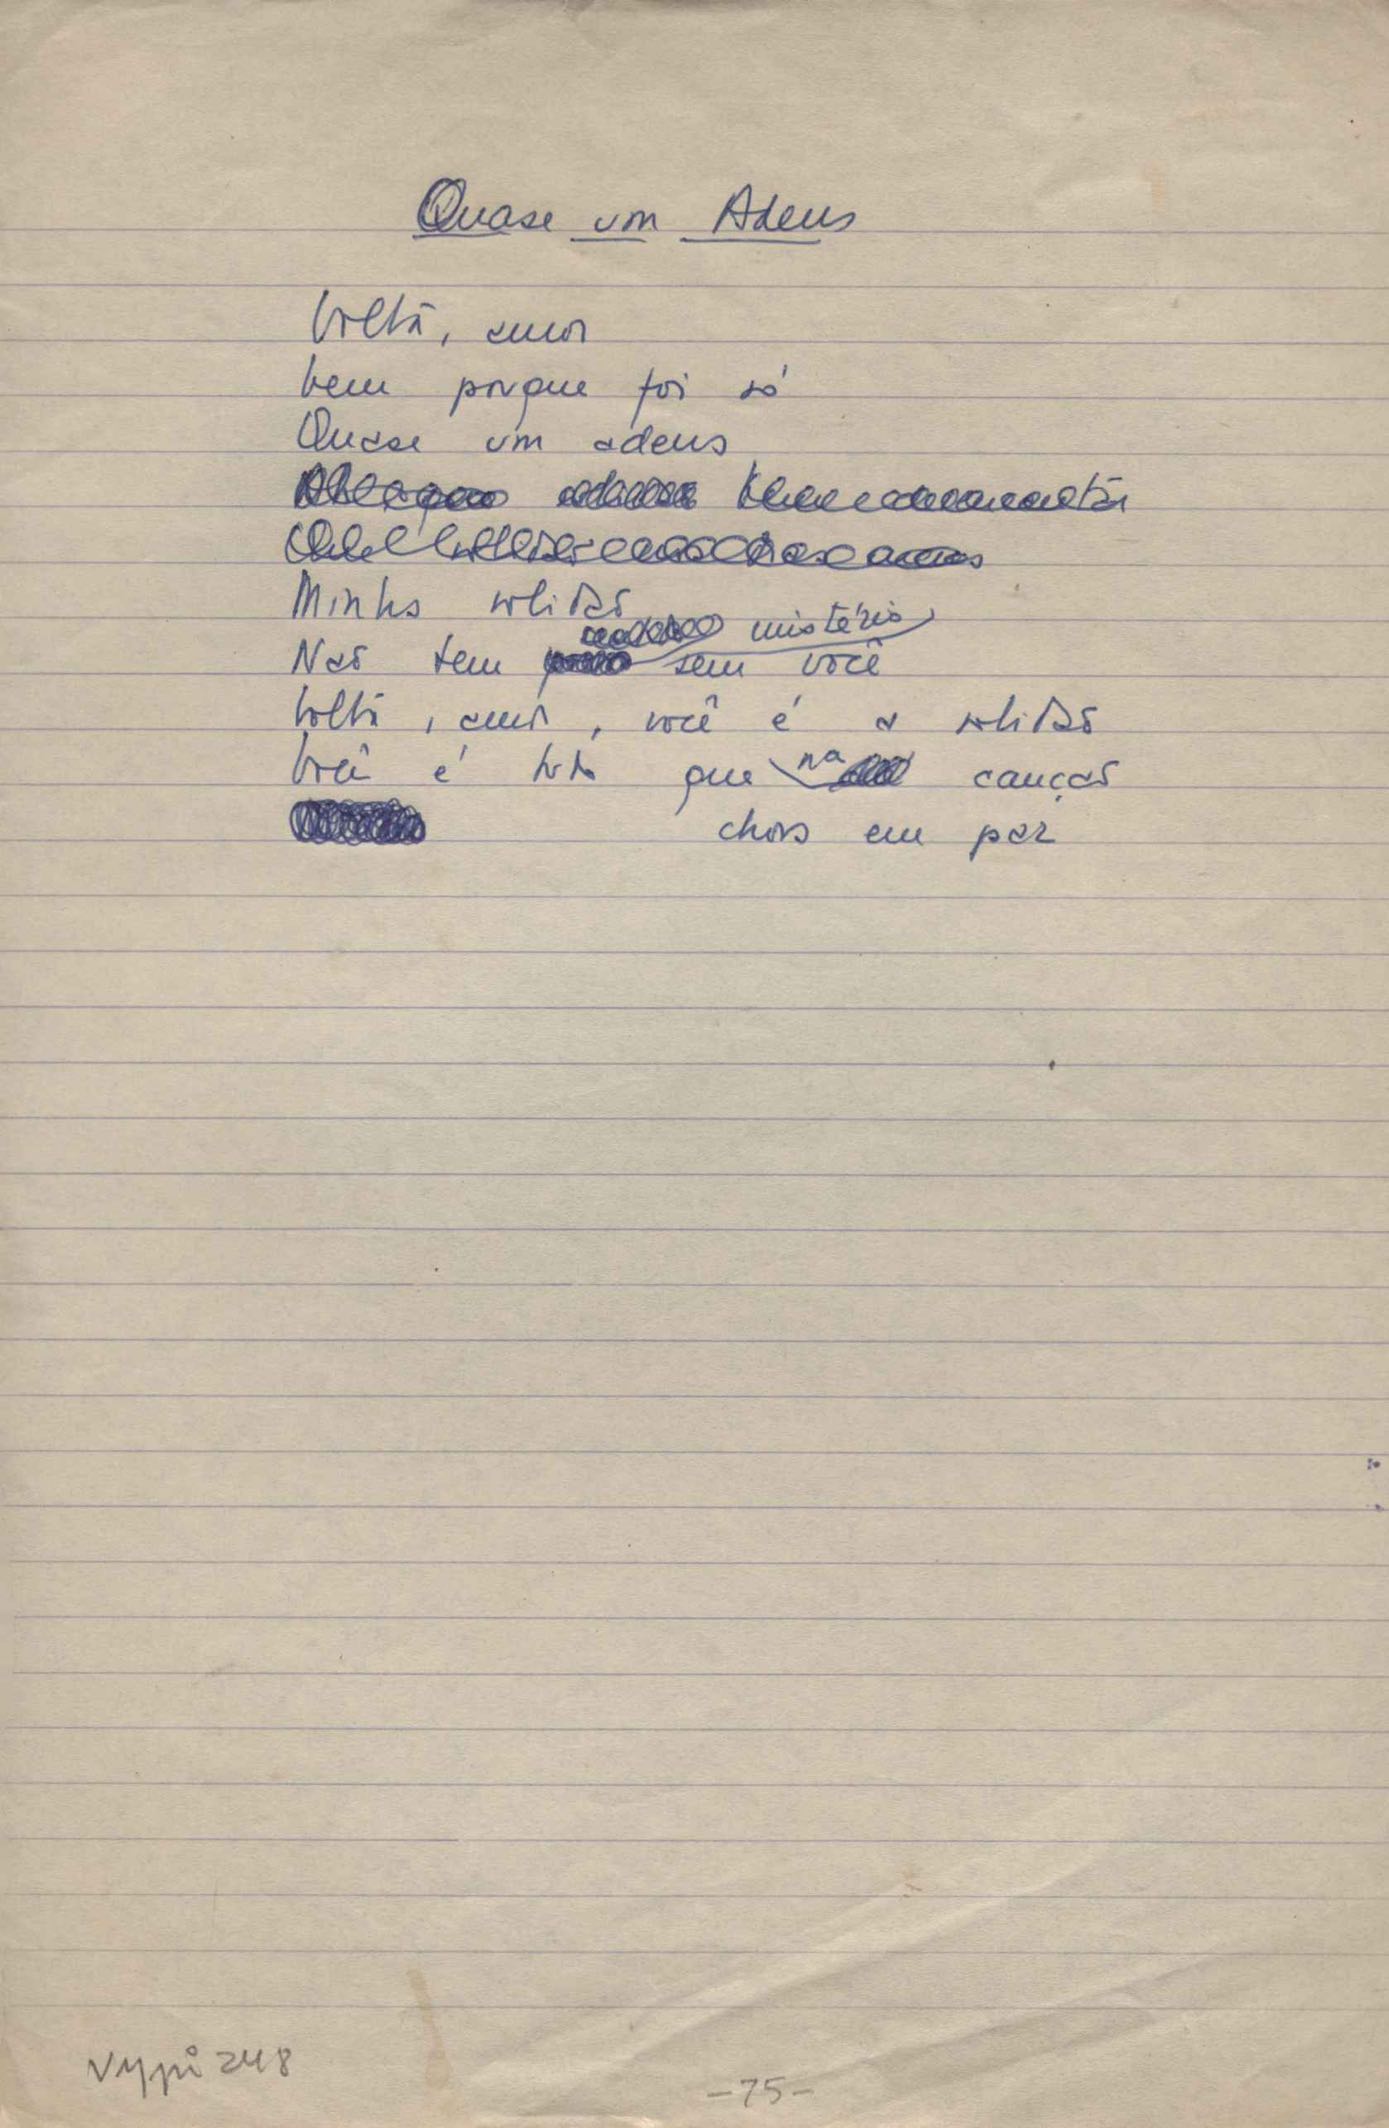 Quase um Adeus
Volta, amor
Vem porque foi só
Quase um adeus
Minha solidão
mistério
Não tem sem você
Volta, amor, você é a solidão
Você é tudo que na canção
chora em paz
Vypi 248
-75-